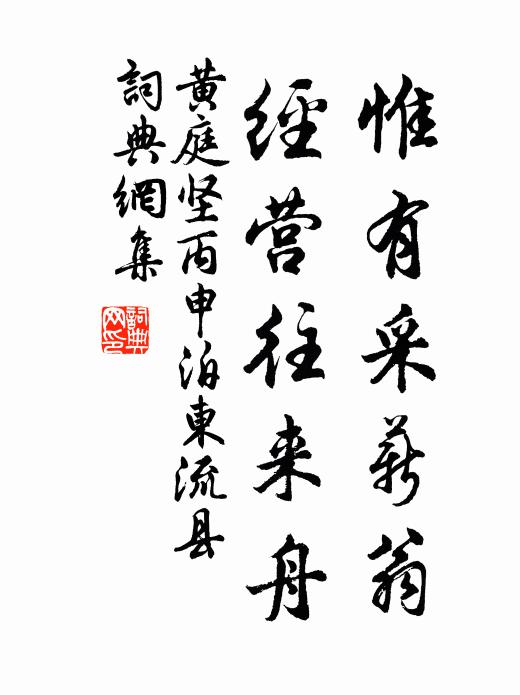 惟有采薪翁
經营往来舟
黄庭坚丙申泊東流县
詞典網集
詞典网印